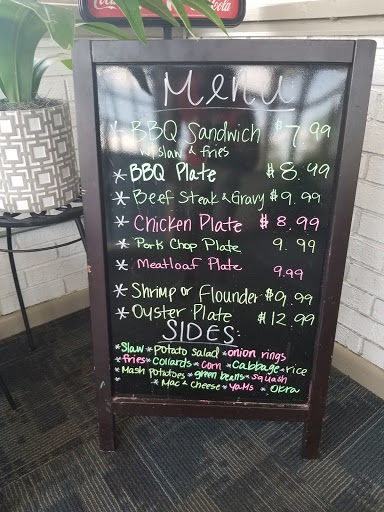 Coca-Cola
Menu
* BBQ Sandwich $7.99
w/slaw & fries
* BBQ Plate $8.49
* Beef Steak & Gravy $9.99
* Chicken Plate $8.99
* Pork Chop Plate 9.99
* Meatloaf Plate 9.99
* Shrimp or Flounder $9.99
* Oyster Plate $12.99
SIDES:
*Slaw *potato salad *onion rings
*fries *collards *corn *Cabbage *rice
*Mash potatoes *green beans *squash
* *Mac & cheese *Yams *Okra